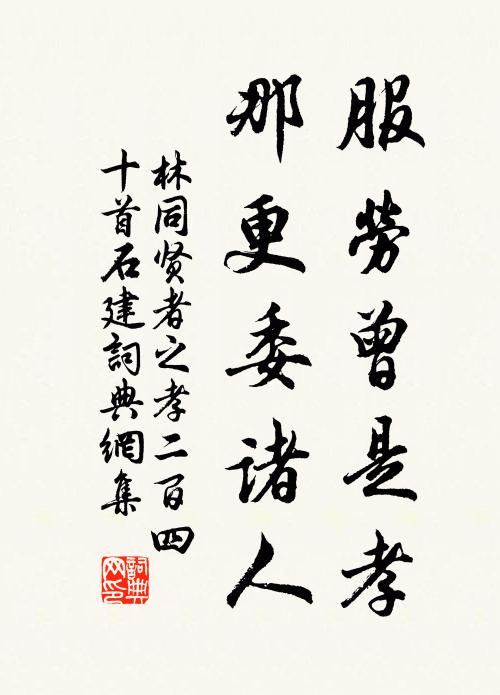 服勞曾是孝
那更委諸人
林同贤者之孝二百四
十首石建詞典網集
詞典
网印